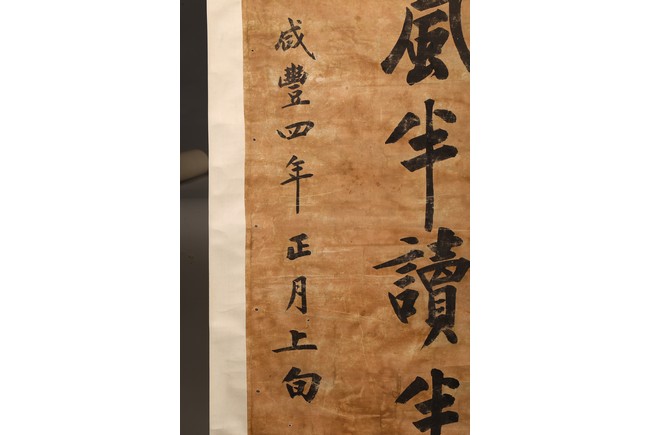 風半讀半
咸豐四年正月上旬